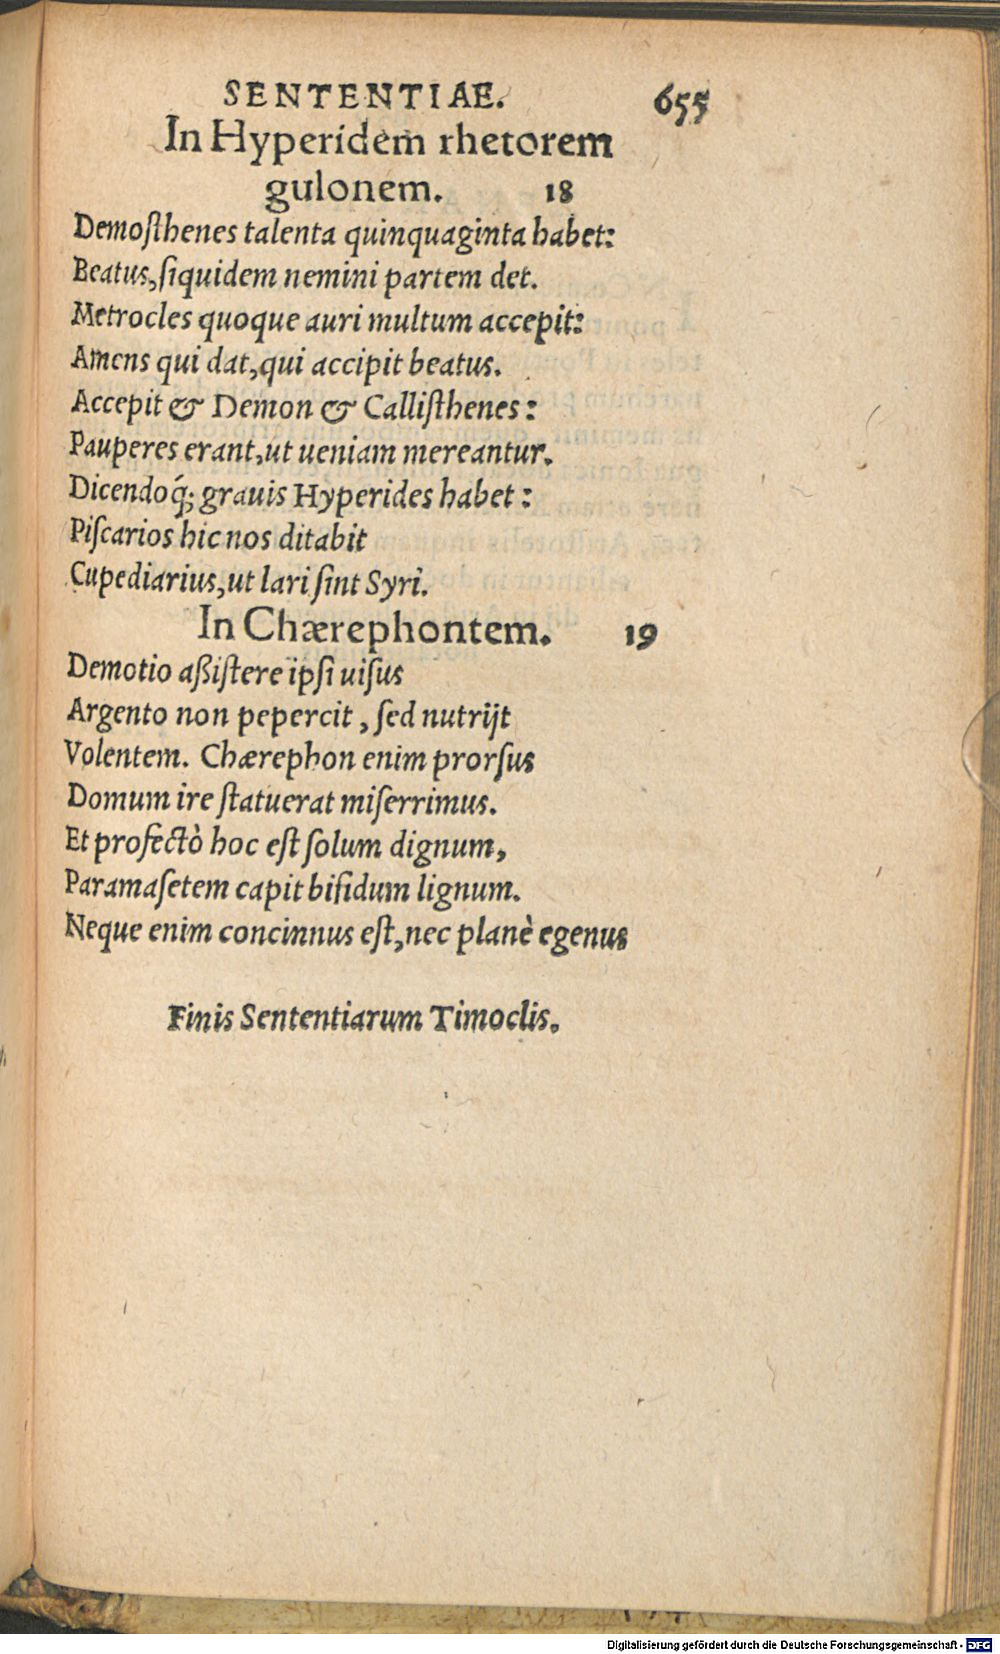 SENTENTIAE. 655
In Hyperidem rhetorem
gulonem. 18
Demoſthenes talenta quinquaginta habet:
Beatus, ſiquidem nemini partem det.
Metrocles quoque auri multum accepit:
Amens qui dat, qui accipit beatus.
Accepit & Demon & Calliſthenes:
Pauperes erant, ut ueniam mereantur.
Dicendoq́; grauis Hyperides habet:
Piſcarios hic nos ditabit
Cupediarius, ut lari ſint Syri.
In Chærephontem. 19
Demotio aßiſtere ipſi uiſus
Argento non pepercit, ſed nutrijt
Volentem. Chærephon enim prorſus
Domum ire ſtatuerat miſerrimus.
Et profectò hoc eſt ſolum dignum,
Paramaſetem capit bifidum lignum.
Neque enim concinnus eſt, nec planè egenus
Finis Sententiarum Timoclis.
Digitalisierung gefördert durch die Deutsche Forschungsgemeinschaft - DFG